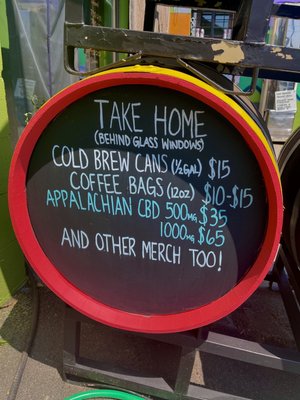 TAKE HOME
(BEHIND GLASS WINDOWS)
COLD BREW CANS (1/2 GAL) $15
COFFEE BAGS (12oz) $10-$15
APPALACHIAN CBD 500mg $35
1000mg $65
AND OTHER MERCH TOO!